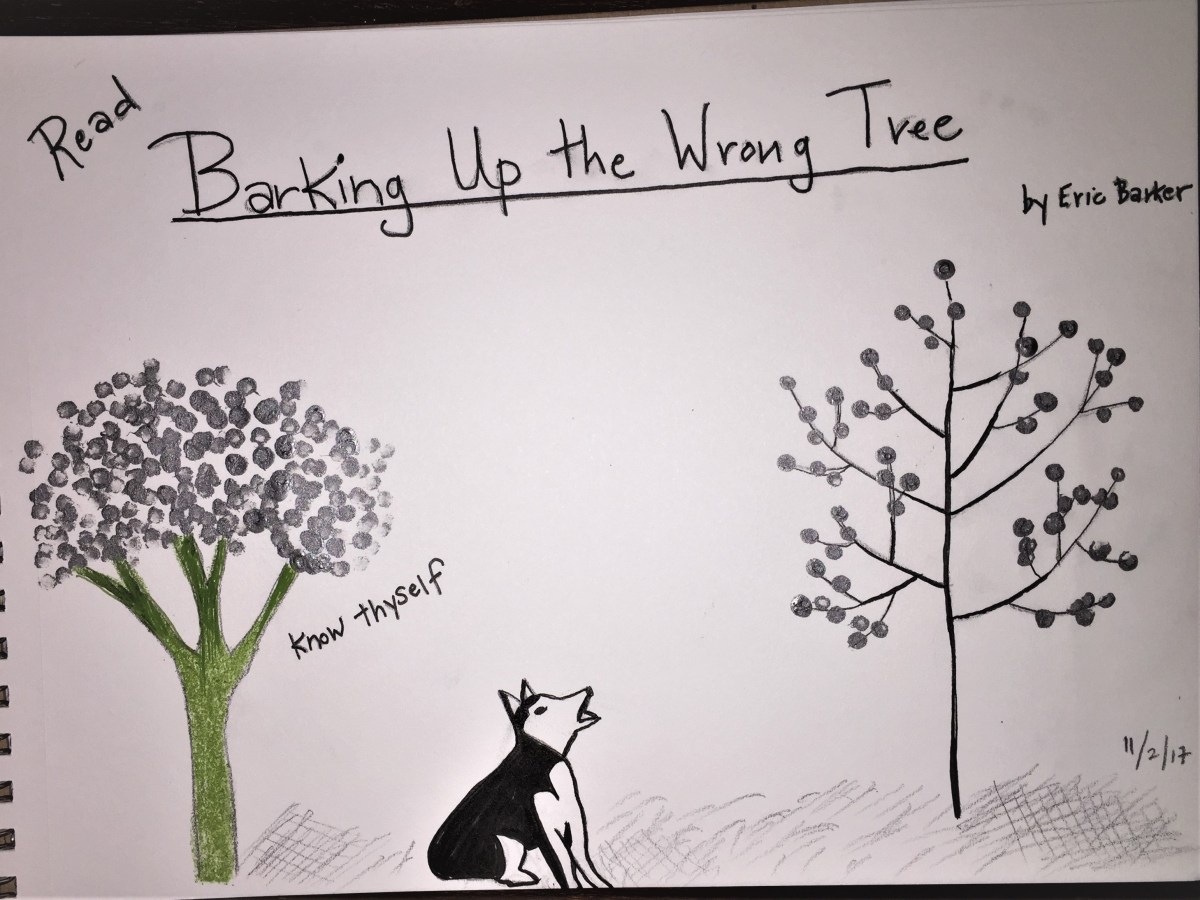 Read
Barking Up the Wrong Tree
by Eric Barker
Know thyself
11/2/17